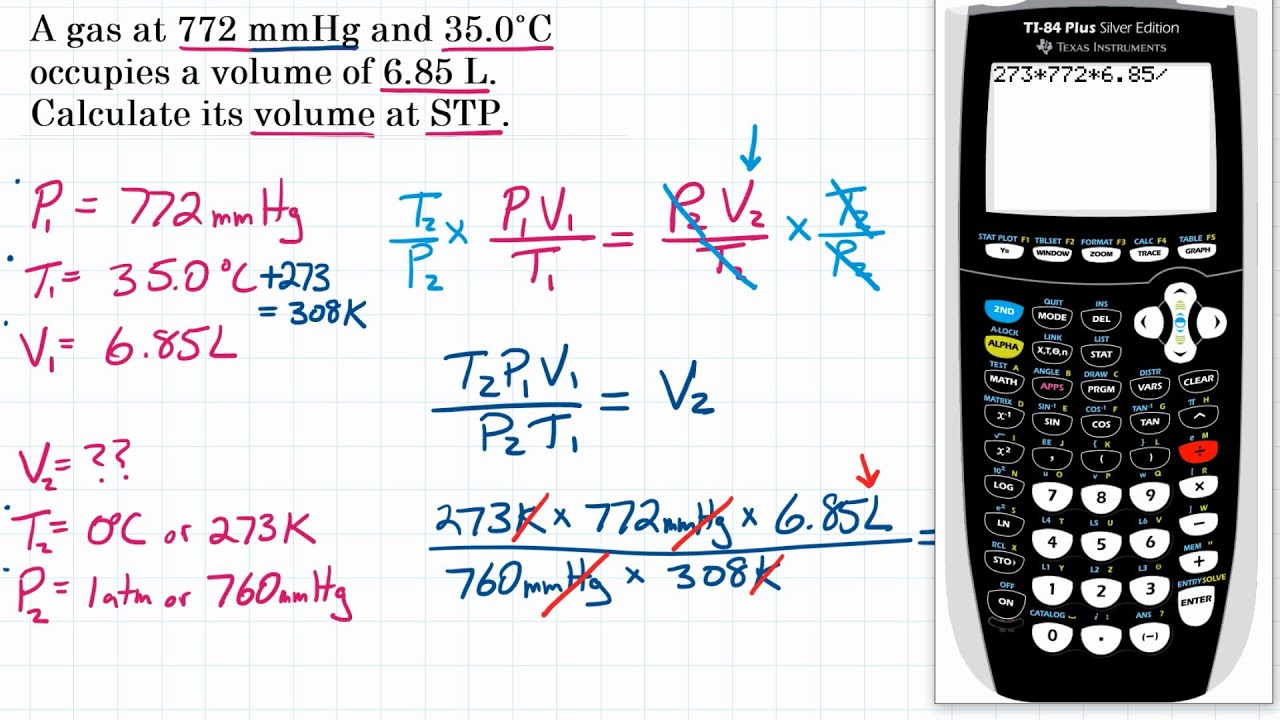 A gas at 772 mmHg and 35.0°C
occupies a volume of 6.85 L.
Calculate its volume at STP.
P₁ = 772 mmHg
T₁ = 35.0°C +273
= 308K
V₁ = 6.85L
V₂ = ??
T₂ = 0°C or 273K
P₂ = 1atm or 760mmHg
T₂/P₂ × P₁V₁/T₁ = P₂V₂/T₂ × T₂/P₂
T₂P₁V₁/P₂T₁ = V₂
273K × 772mmHg × 6.85L
=
760mmHg × 308K
TI-84 Plus Silver Edition
TEXAS INSTRUMENTS
273*772*6.85/
STAT PLOT F1 TBLSET F2 FORMAT F3 CALC F4 TABLE F5
Y= WINDOW ZOOM TRACE GRAPH
QUIT INS
2ND MODE DEL
A-LOCK LINK LIST
ALPHA X,T,Θ,n STAT
TEST A ANGLE B DRAW C DISTR
MATH APPS PRGM VARS CLEAR
MATRIX D SIN⁻¹ E COS⁻¹ F TAN⁻¹ G π H
x⁻¹ SIN COS TAN ^
√ I EE J { K } L e M
x² , ( ) ÷
10ˣ N u O v P w Q [ R
LOG 7 8 9 ×
eˣ S L4 T L5 U L6 V ] W
LN 4 5 6 −
RCL X L1 Y L2 Z L3 Θ MEM "
STO› 1 2 3 +
OFF CATALOG ⎵ i : ANS ? ENTRY SOLVE
ON 0 . (−) ENTER